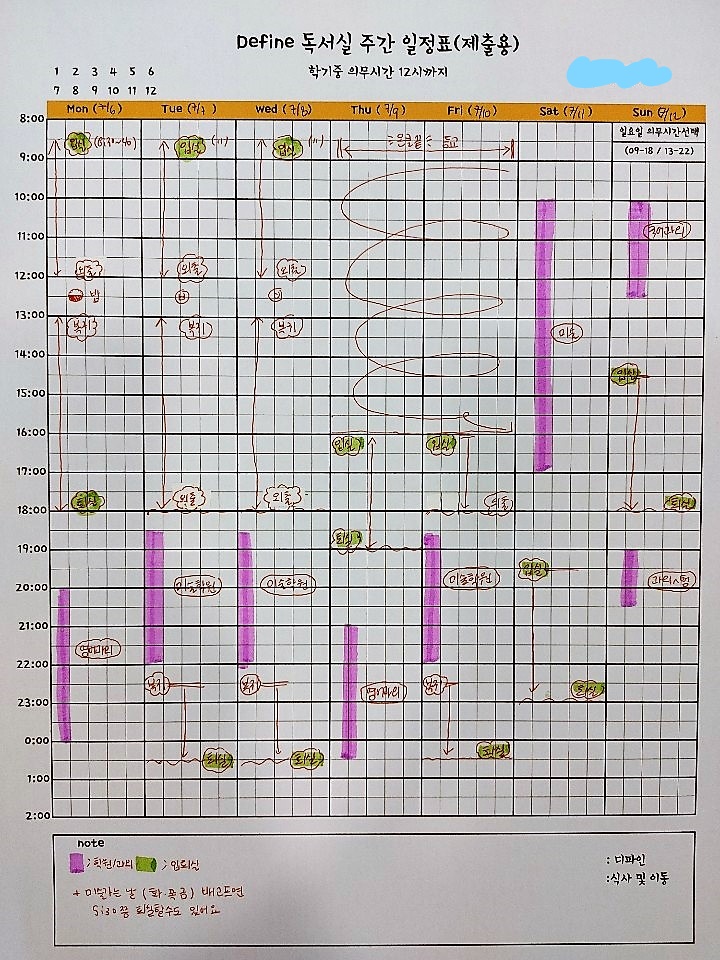 Define 독서실 주간 일정표(제출용)
학기중 의무시간 12시까지
1 2 3 4 5 6
7 8 9 10 11 12
Mon (7/6) Tue (7/7) Wed (7/8) Thu (7/9) Fri (7/10) Sat (7/11) Sun (7/12)
8:00
일요일 의무시간선택
(09-18 / 13-22)
입실 (8:30~40) 입실 (") 입실 (") 등교
9:00
10:00
11:00 국어과외
외출 외출 외출
12:00
밥
13:00
복귀 복귀 복귀
미술
14:00
입실
15:00
16:00
입실 입실
17:00
퇴실 외출 외출 외출 퇴실
18:00
퇴실
19:00
입실
미술학원 미술학원 미술학원
20:00
21:00
영어과외
22:00
복귀 복귀 복귀
영어과외 퇴실
23:00
0:00
퇴실 퇴실 퇴실
1:00
2:00
note
: 학원/과외 : 입퇴실
: 디파인
:식사 및 이동
+ 미술가는 날 (화·목·금) 배고프면
5:30쯤 퇴실할수도 있어요